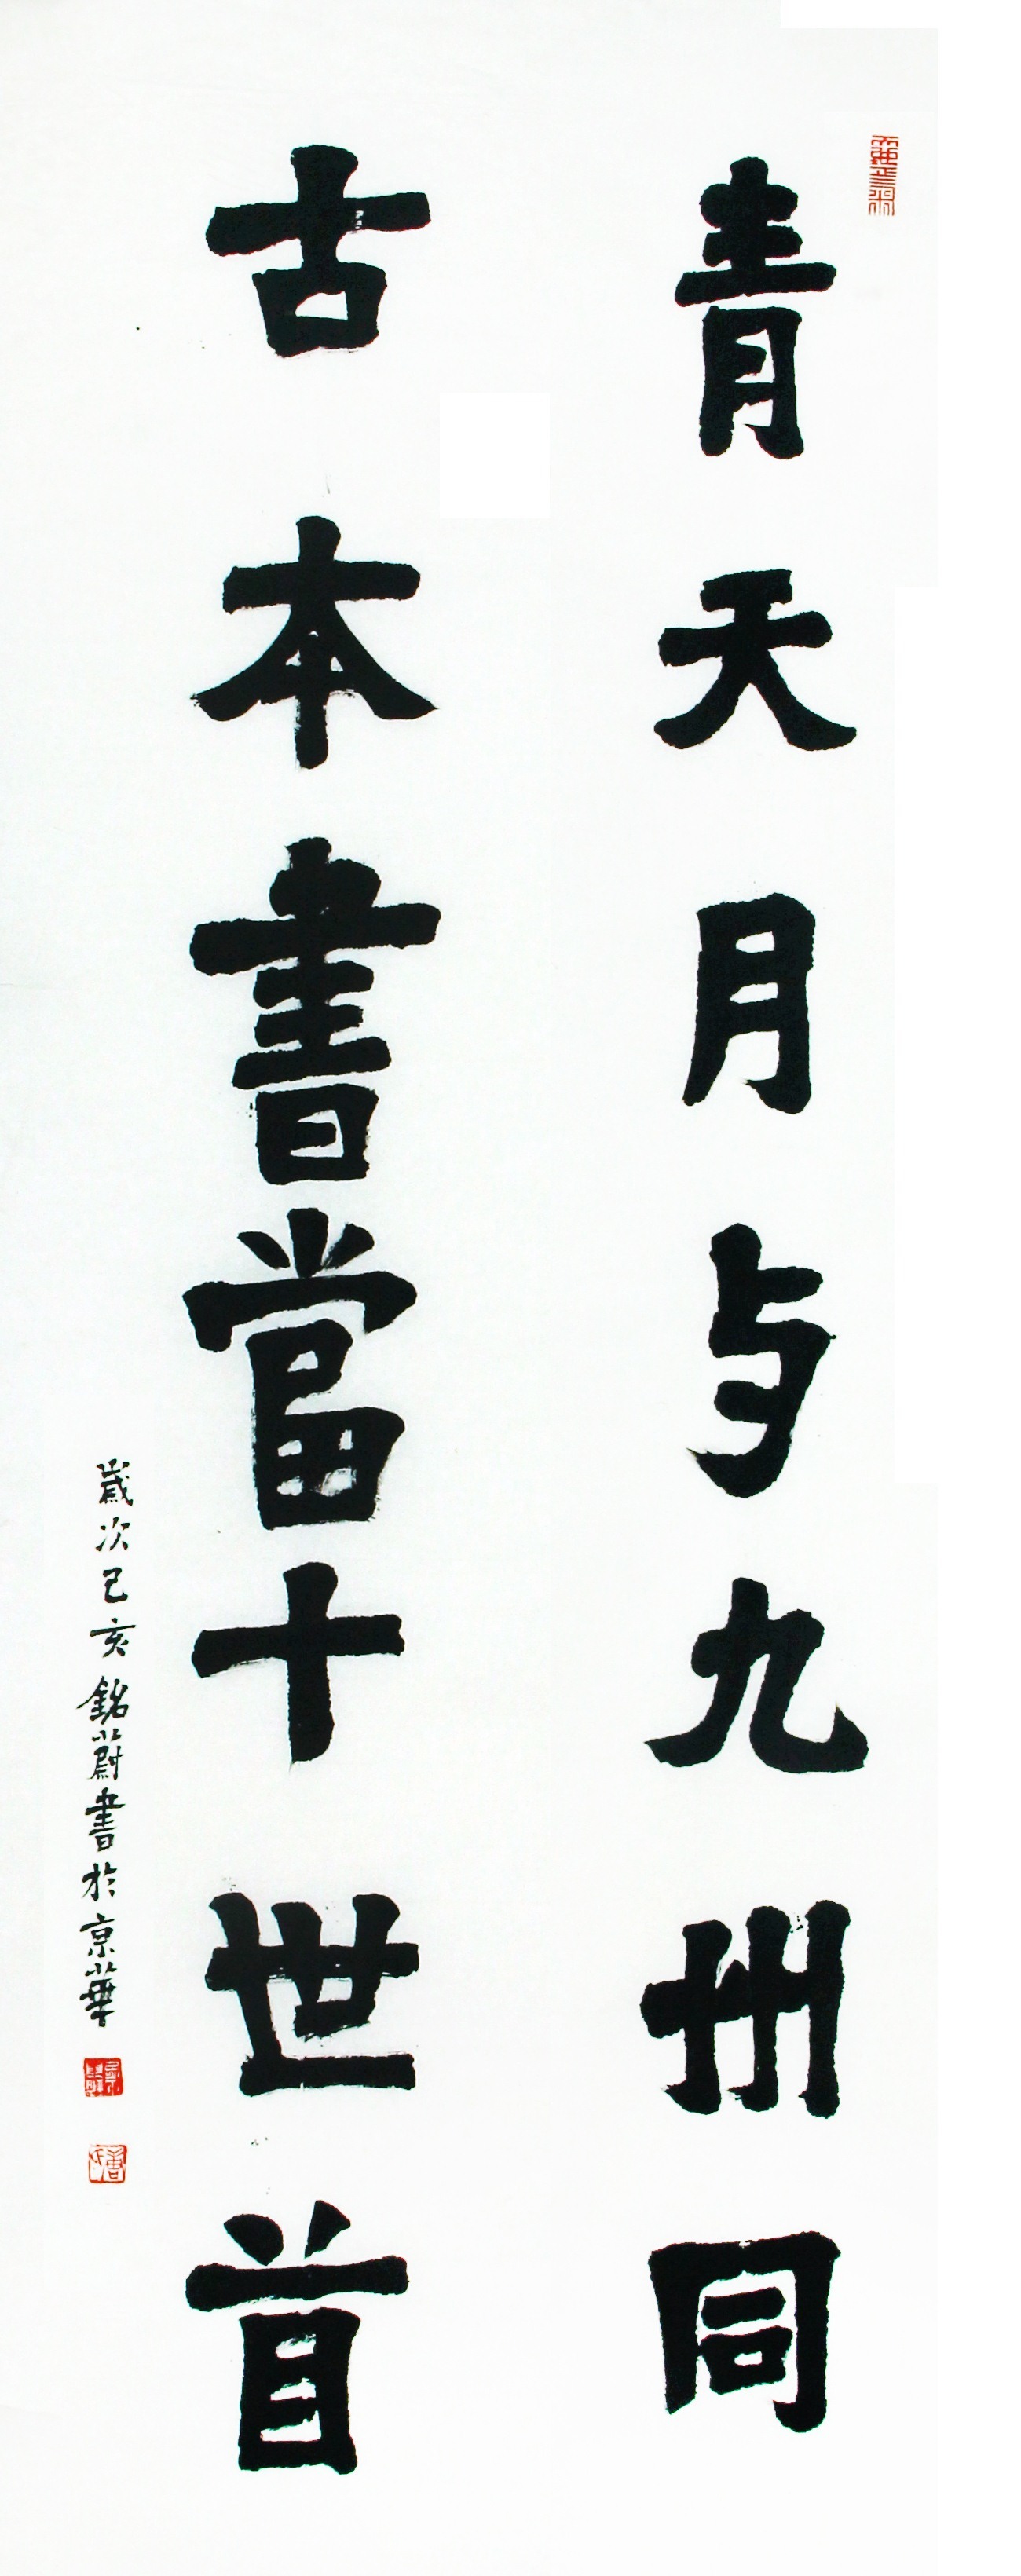 青天月与九州同
古本書當十世首
歲次己亥銘蔚書於京華